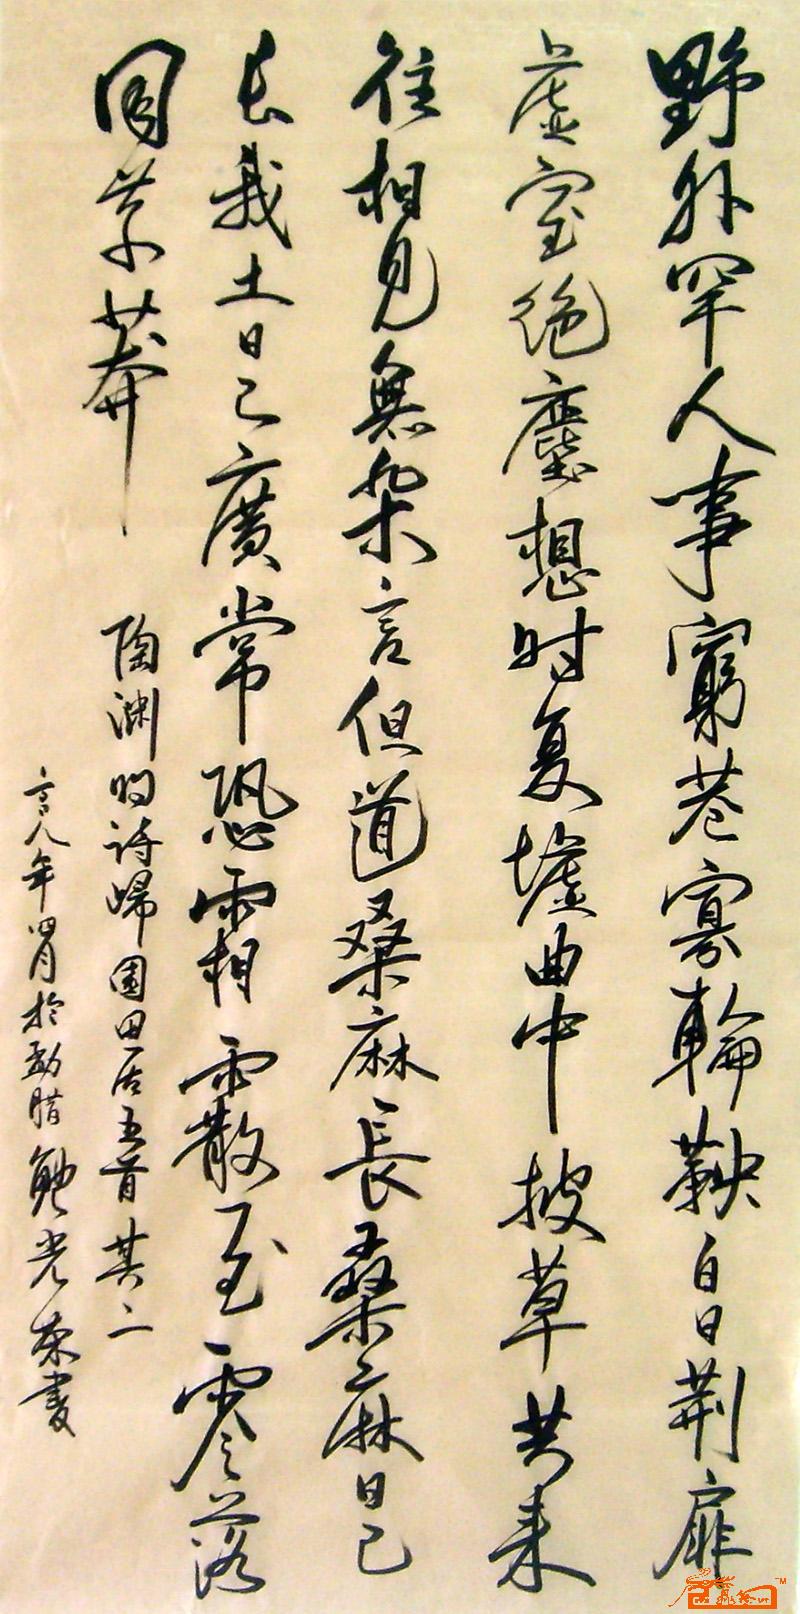 野外罕人事窮巷寡輪鞅白日荆扉
虚室絶塵想时复墟曲中披草共来
往相見無杂言但道桑麻長桑麻日已
长我土日已廣常恐霜霰至零落
同草莽
陶渊明詩歸園田居五首其二
八年四月於勐腊 光荣書